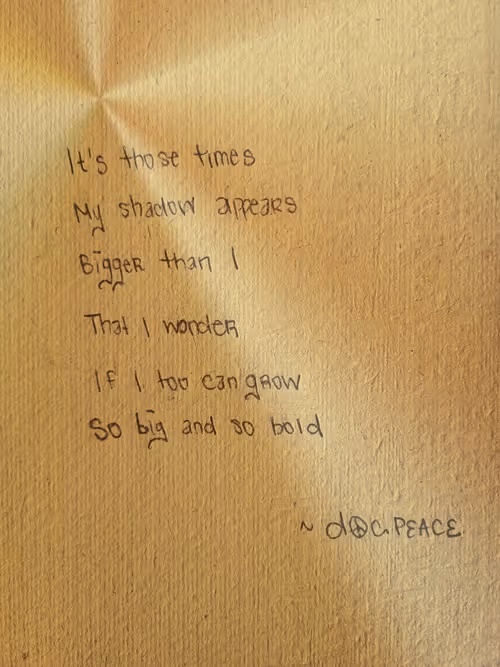 It's those times
My shadow appears
Bigger than I
That I wonder
If I too can grow
So big and so bold
~ d☮c.PEACE